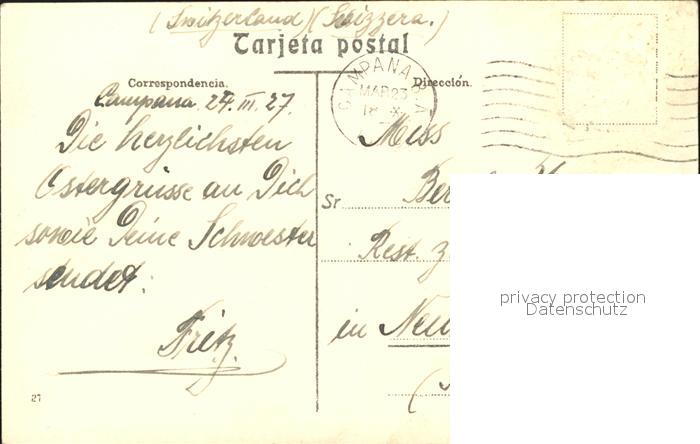 (Switzerland) (Suizzera.)
Tarjeta postal
Correspondencia.
Dirección.
Campana 24. III. 27.
Die herzlichsten
Ostergrüsse an Dich
sowie Deine Schwester
sendet:
Fritz.
CAMPANA
MAR 23
18
Miss
Sr
Ber
Rest. z
in Neu
privacy protection
Datenschutz
27